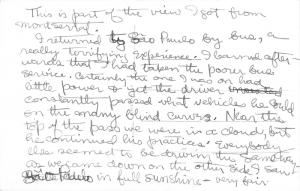 This is part of the view I got from
Montserrat.
I returned to São Paulo by bus, a
really terrifying experience. I learned after-
wards that I had taken the poorer bus
service. Certainly the one I was on had
little power & yet the driver
constantly passed what vehicles he could
on the many blind curves. Near the
top of the pass we were in a cloud, but
he continued his practices. Everybody
else seemed to be doing the same thing,
as we came down on the other side I saw
in full sunshine - very fair